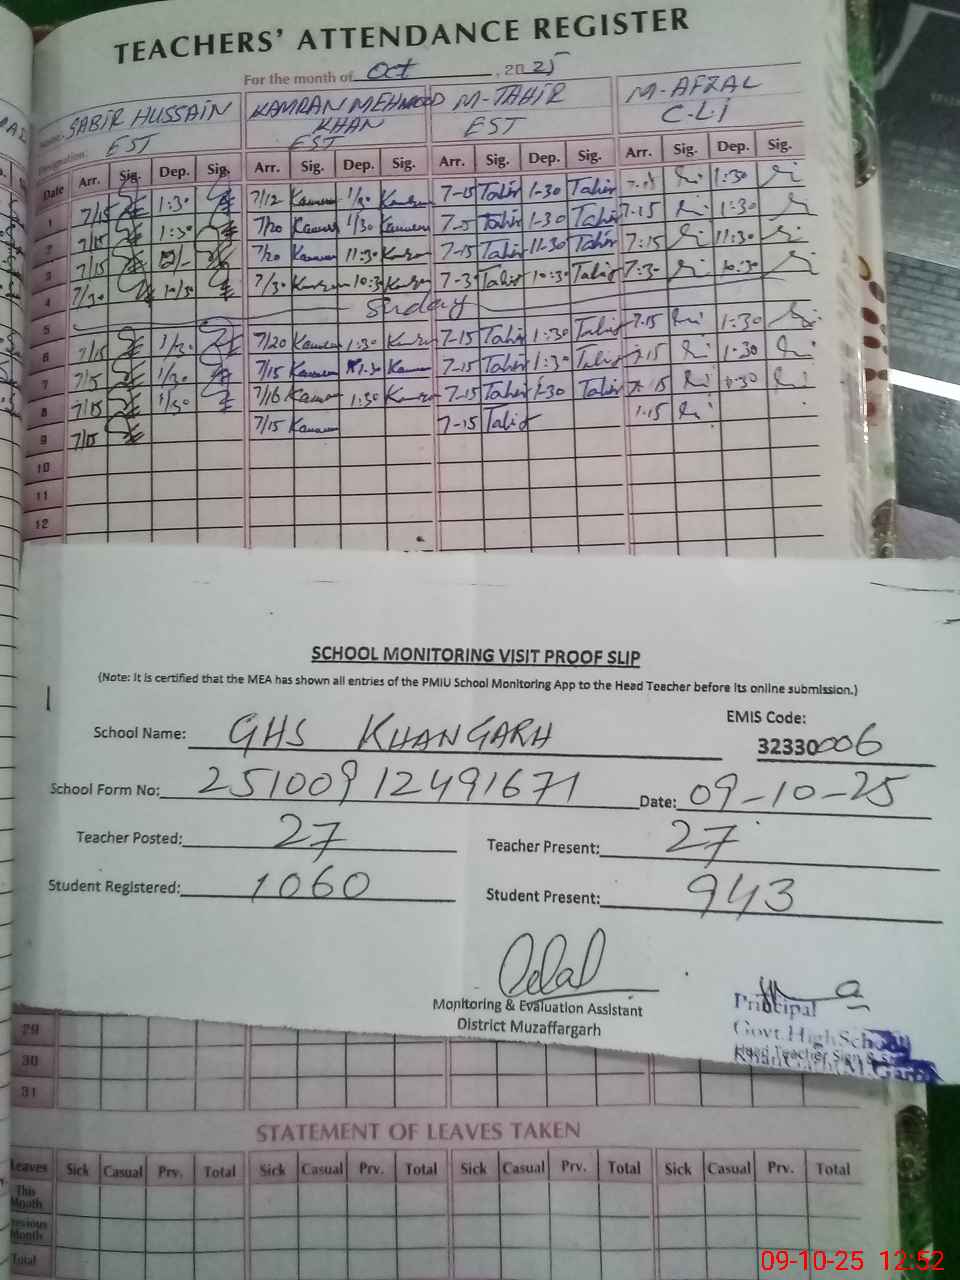 TEACHERS' ATTENDANCE REGISTER
For the month of Oct, 2025
SABIR HUSSAIN KAMRAN MEHMOOD KHAN M-TAHIR M-AFZAL
Designation: EST EST EST C.L.I
Date Arr. Sig. Dep. Sig. Arr. Sig. Dep. Sig. Arr. Sig. Dep. Sig. Arr. Sig. Dep. Sig.
1 7/15 1:30 7/12 1/30 7-15 Tahir 1-30 Tahir 1:30
2 7/15 1:30 7/20 1/30 Tahir 1-30 Tahir 7-15 1:30
3 7/15 7/20 11:30 7-15 Tahir 11-30 Tahir 7:15 11:30
4 7/30 10/30 7/30 10:30 7-30 Tahir 10:30 Tahir 7:30 10:30
5 Sunday
6 7/15 1/30 7/20 1:30 7-15 Tahir 1:30 Tahir 7-15 1:30
7 7/15 1/30 7/15 1:30 7-15 Tahir 1:30 Tahir 7-15 1-30
8 7/15 1/30 7/16 1:30 7-15 Tahir 1-30 Tahir 7-15 1-30
9 7/15 7/15 7-15 Tahir
10
11
12
SCHOOL MONITORING VISIT PROOF SLIP
(Note: It is certified that the MEA has shown all entries of the PMIU School Monitoring App to the Head Teacher before its online submission.)
School Name: GHS KHANGARH EMIS Code: 32330006
School Form No: 25100912491671 Date: 09-10-25
Teacher Posted: 27 Teacher Present: 27
Student Registered: 1060 Student Present: 943
Monitoring & Evaluation Assistant
District Muzaffargarh
Principal
Govt. High School
Head Teacher Sign &
KhanGarh (M.Garh)
29
30
31
STATEMENT OF LEAVES TAKEN
Leaves Sick Casual Prv. Total Sick Casual Prv. Total Sick Casual Prv. Total Sick Casual Prv. Total
This Month
Previous Month
Total
09-10-25 12:52